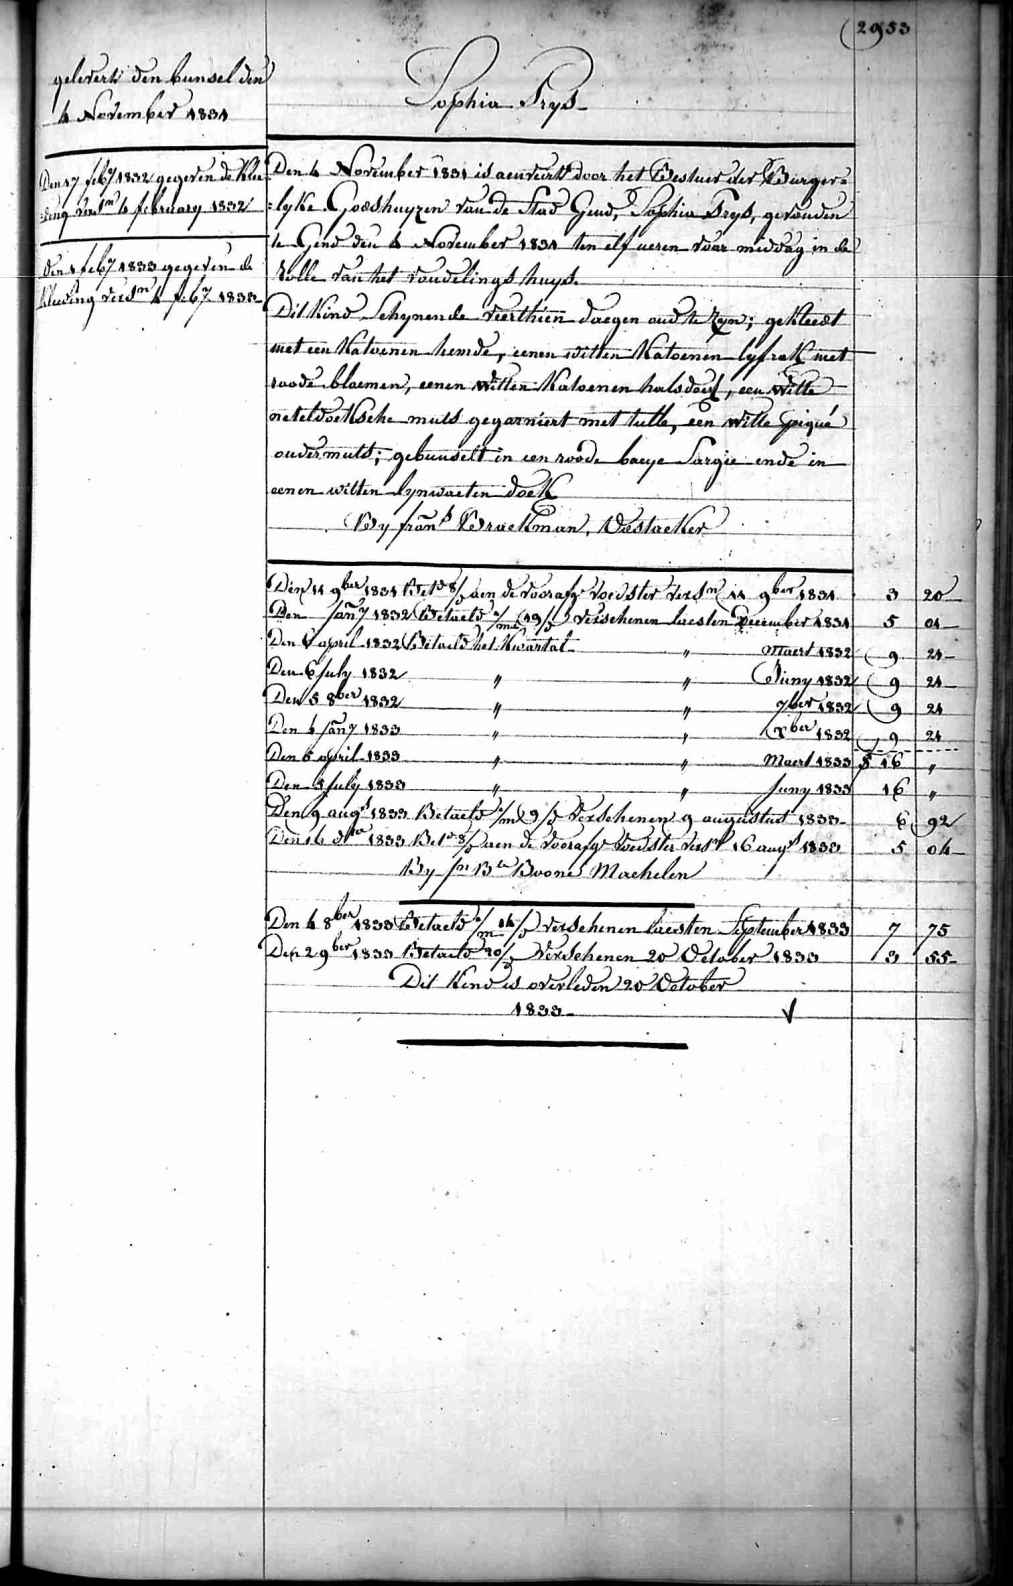 2953
gelevert den bunsel den
4 November 1831
Den 17 feb.y 1832 gegeven de Klee=
=ding vers.n 4 february 1832
den 1 feb.y 1833 gegeven de
kleeding vers.n 4 feb.y 1833
Sophia Prys
Den 4 November 1831 is aenveird door het Bestuer der Burger=
=lyke Godshuyzen van de Stad Gend, Sophia Prys, gevonden
te Gend den 4 November 1831 ten elf ueren voor middag in de
rolle van het vondelings huys.
Dit Kind Schynende veerthien daegen oud te zyn; gekleed
met een Katoenen hemde, eenen witten Katoenen lyfrok met
roode bloemen, eenen witten Katoenen halsdoek, een witte
neteldoeksche muts gegarniert met tulle, een witte piqué
ondermuts; gebunselt in een roode baeye Sargie ende in
eenen witten lynwaeten doek
By fran.s Braekman, Oostacker
Den 14 9ber 1831 Bet.d 8/ aen de voorafg.e voedster vers.n 11 9ber 1831 3 20
Den Jan.y 1832 Betaeld 1/m 19/ verschenen laesten December 1831 5 04
Den 6 april 1832 Betaeld het Kwartal „ Maert 1832 9 24
Den 6 July 1832 „ „ Juny 1832 9 24
Den 5 8ber 1832 „ „ 7ber 1832 9 24
Den 4 Jan.y 1833 „ „ Xber 1832 9 24
Den 5 april 1833 „ „ Maert 1833 16 „
Den 5 July 1833 „ „ Juny 1833 16 „
Den 9 aug.s 1833 Betaeld 1/m 9/ Verschenen 9 augustus 1833 6 92
Den 16 1833 Bet.d 8/ aen de voorafg.e voedster vers.n 16 aug.s 1833 5 04
By B.te Boone Machelen
Den 4 8ber 1833 Betaeld 1/m 14/ verschenen laesten September 1833 7 75
Den 2 9ber 1833 Betaeld 20/ Verschenen 20 October 1833 3 55
Dit Kind is overleden 20 October
1833